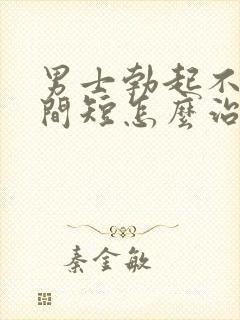 男士勃起不
間短怎麼治
秦金敏